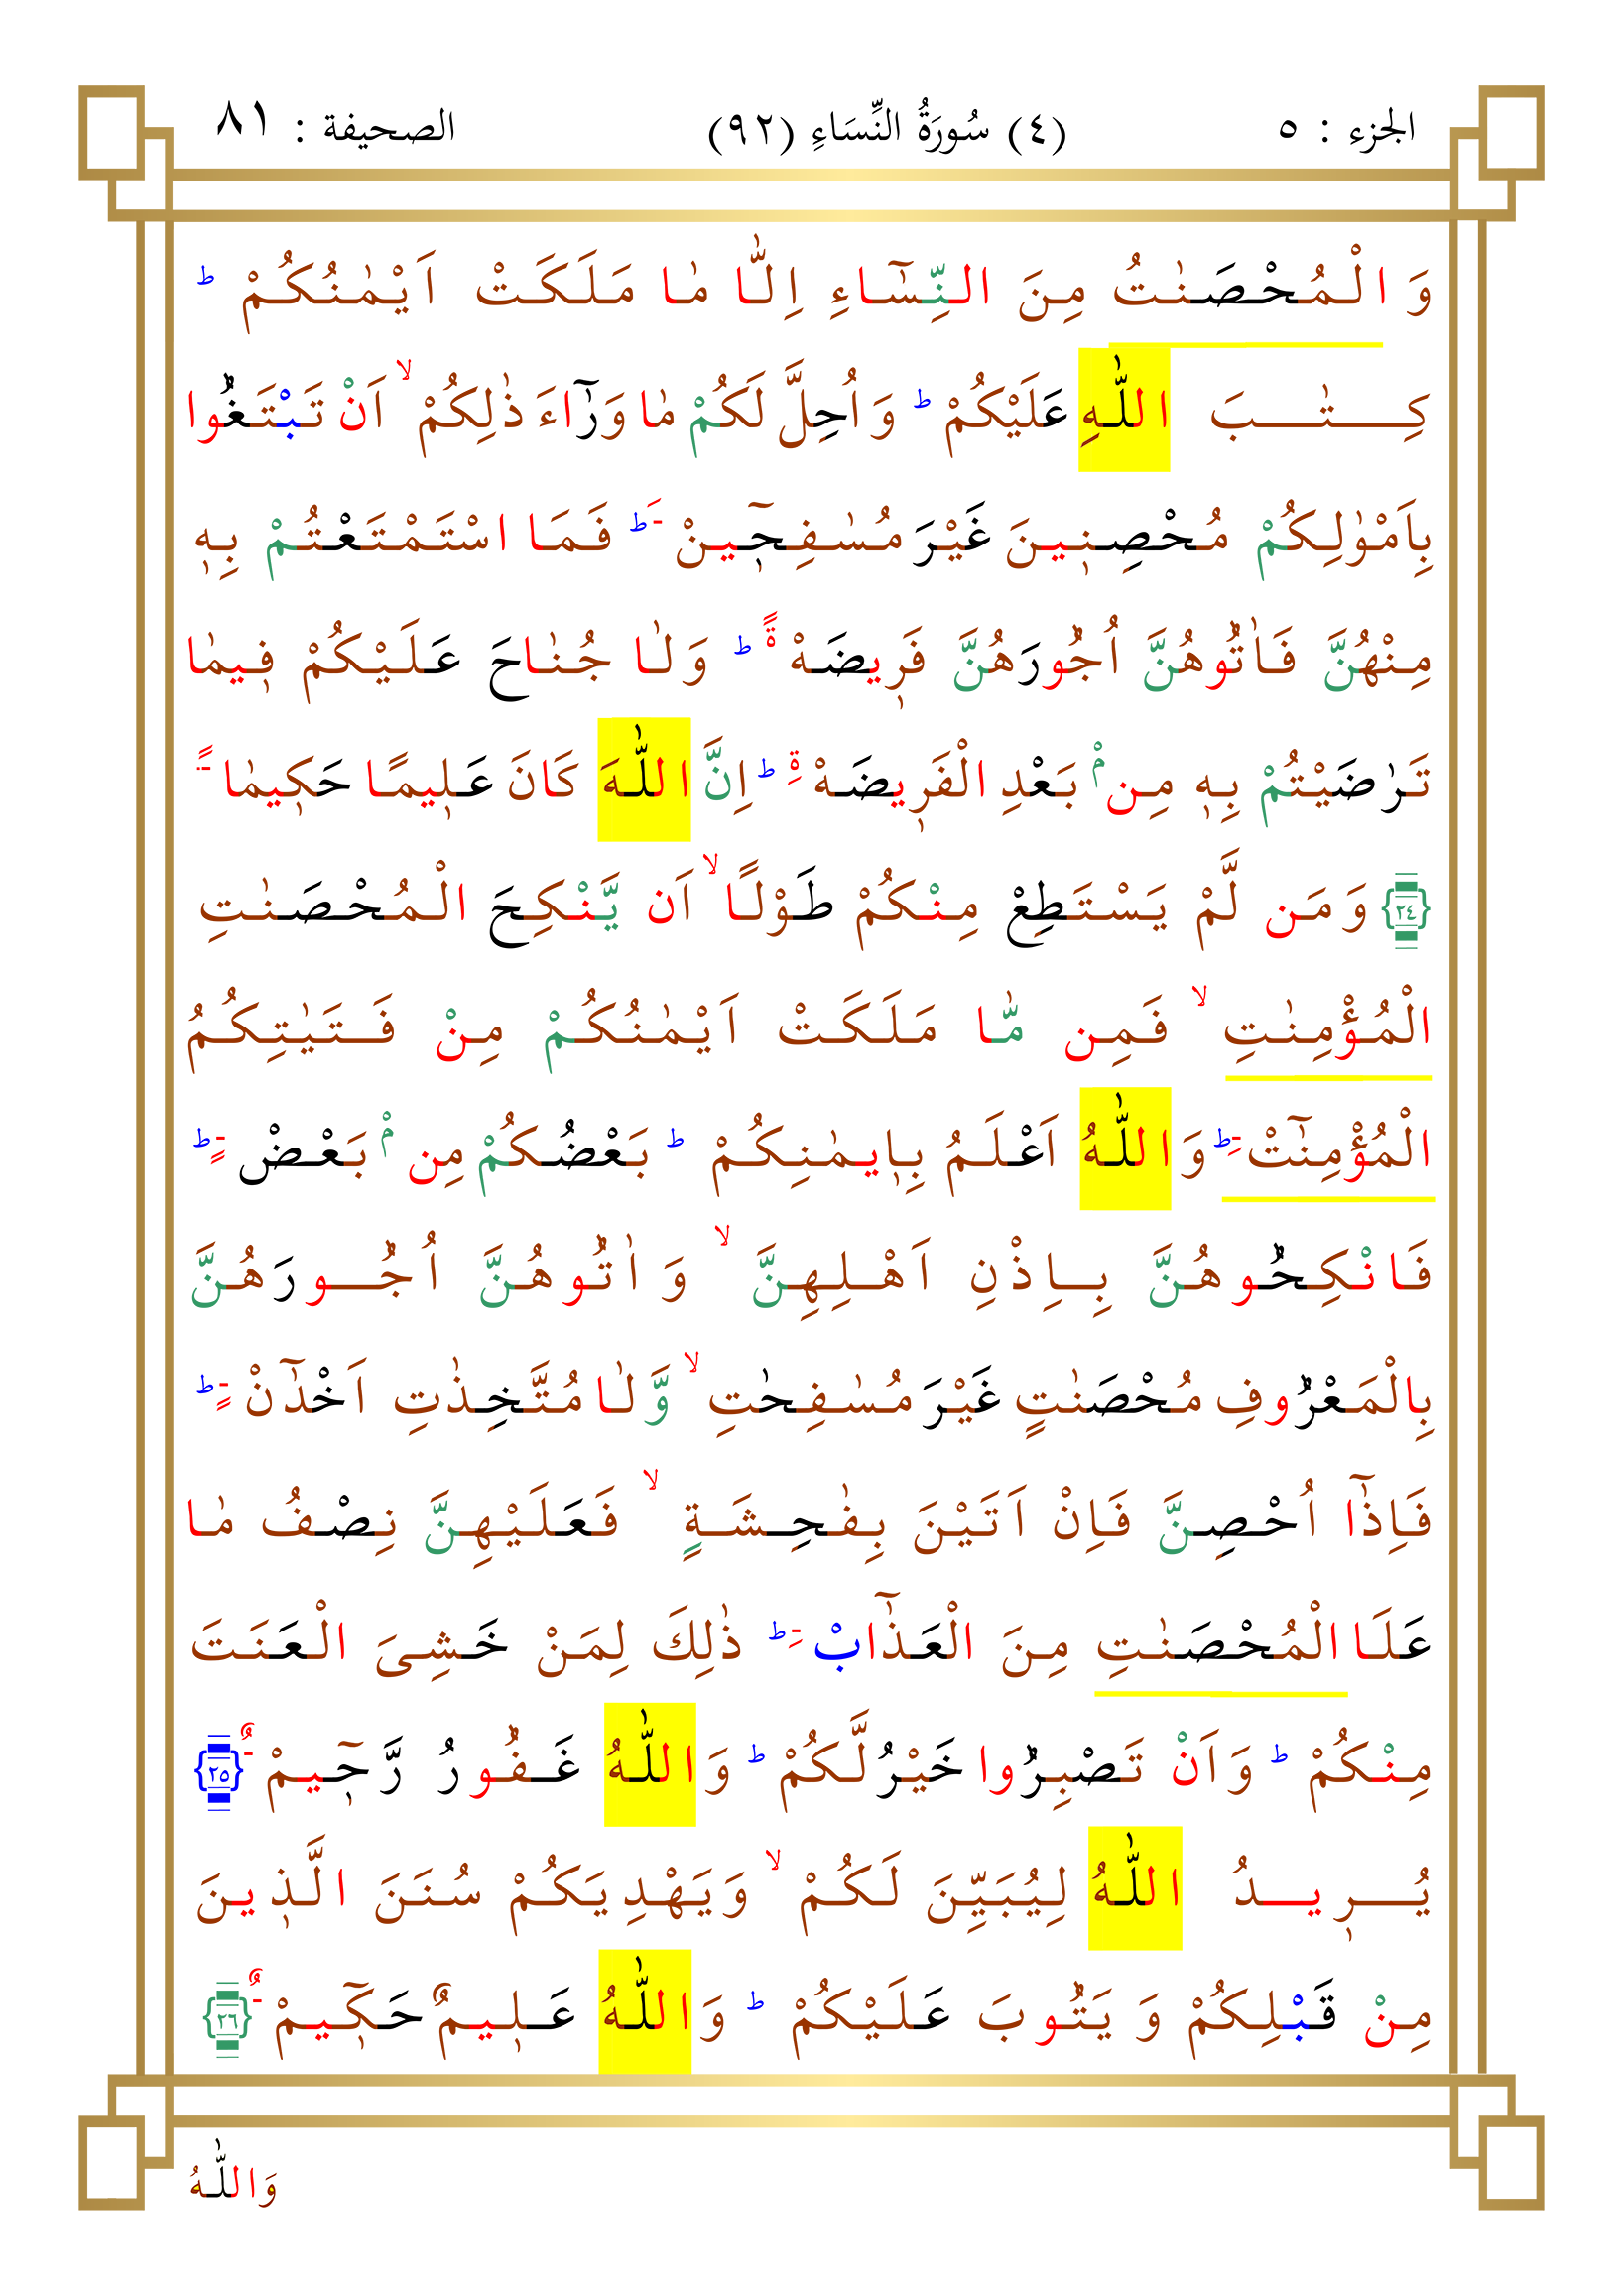 الجزء : ٥ (٤) سُورَةُ النِّسَاءِ (٩٢) الصحيفة : ٨١
وَالْمُحْصَنٰتُ مِنَ النِّسَٓاءِ اِلَّا مٰا مَلَكَتْ اَيْمٰنُكُمْ ط
كِتٰبَ اللّٰهِ عَلَيْكُمْ ط وَاُحِلَّ لَكُمْ مٰا وَرَٓاءَ ذٰلِكُمْ لا اَنْ تَبْتَغُوا
بِاَمْوٰلِكُمْ مُحْصِنٖينَ غَيْرَ مُسٰفِحٖٓينْ َ ط فَمَا اسْتَمْتَعْتُمْ بِهٖ
مِنْهُنَّ فَاٰتُوهُنَّ اُجُورَهُنَّ فَرٖيضَهْ ةً ط وَلٰا جُنٰاحَ عَلَيْكُمْ فٖيمٰا
تَرٰضَيْتُمْ بِهٖ مِنۢ بَعْدِ الْفَرٖيضَهْ ةِ ط اِنَّ اللّٰهَ كَانَ عَلٖيمًا حَكٖيمٰا ً
﴿٢٤﴾ وَمَن لَّمْ يَسْتَطِعْ مِنْكُمْ طَوْلًا لا اَن يَّنْكِحَ الْمُحْصَنٰتِ
الْمُؤْمِنٰتِ لا فَمِن مّٰا مَلَكَتْ اَيْمٰنُكُمْ مِنْ فَتَيٰتِكُمُ
الْمُؤْمِنٰٓتْ ِ ط وَاللّٰهُ اَعْلَمُ بِاٖيمٰنِكُمْ ط بَعْضُكُمْ مِنۢ بَعْضْ ٍ ط
فَانْكِحُوهُنَّ بِاِذْنِ اَهْلِهِنَّ لا وَاٰتُوهُنَّ اُجُورَهُنَّ
بِالْمَعْرُوفِ مُحْصَنٰتٍ غَيْرَ مُسٰفِحٰتِ لا وَّلٰا مُتَّخِذٰتِ اَخْدٰٓنْ ٍ ط
فَاِذٰٓا اُحْصِنَّ فَاِنْ اَتَيْنَ بِفٰحِشَةٍ لا فَعَلَيْهِنَّ نِصْفُ مٰا
عَلَا الْمُحْصَنٰتِ مِنَ الْعَذٰٓابْ ِ ط ذٰلِكَ لِمَنْ خَشِىَ الْعَنَتَ
مِنْكُمْ ط وَاَنْ تَصْبِرُوا خَيْرُ لَّكُمْ ط وَاللّٰهُ غَفُورُ رَّحٖٓيمْ ٌ ﴿٢٥﴾
يُرٖيدُ اللّٰهُ لِيُبَيِّنَ لَكُمْ لا وَيَهْدِيَكُمْ سُنَنَ الَّذٖينَ
مِنْ قَبْلِكُمْ وَيَتُوبَ عَلَيْكُمْ ط وَاللّٰهُ عَلٖيمٌ حَكٖٓيمْ ٌ ﴿٢٦﴾
وَاللّٰهُ